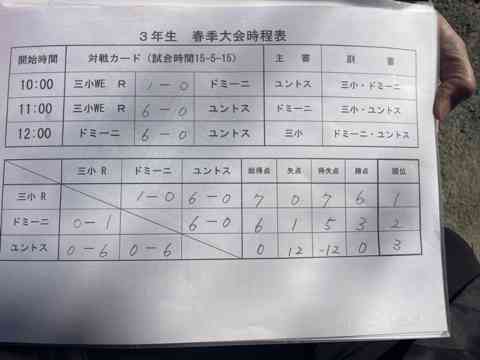 3年生 春季大会時程表
開始時間 対戦カード(試合時間15-5-15) 主審 副審
10:00 三小WE R 1-0 ドミーニ ユントス 三小・ドミーニ
11:00 三小WE R 6-0 ユントス ドミーニ 三小・ユントス
12:00 ドミーニ 6-0 ユントス 三小 ドミーニ・ユントス
三小R ドミーニ ユントス 総得点 失点 得失点 勝点 順位
三小R 1-0 6-0 7 0 7 6 1
ドミーニ 0-1 6-0 6 1 5 3 2
ユントス 0-6 0-6 0 12 -12 0 3